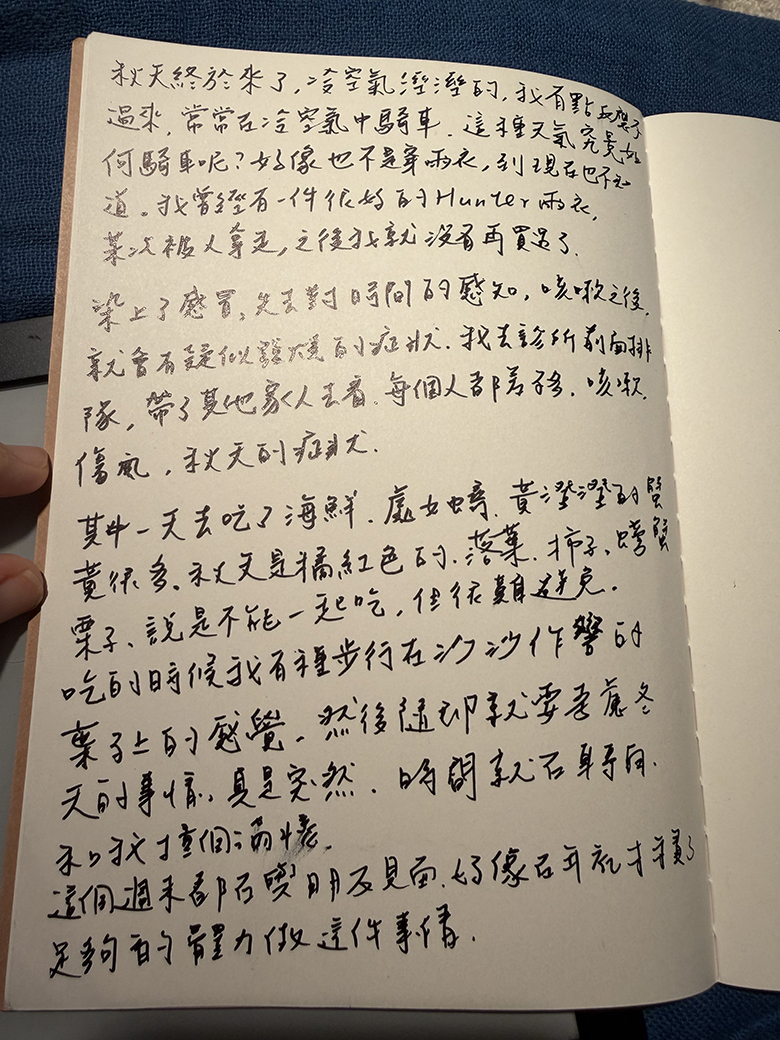 秋天終於來了，冷空氣溼溼的，我有點反應不
過來，常常在冷空氣中騎車．這種天氣究竟如
何騎車呢？好像也不是穿雨衣，到現在也不知
道。我曾經有一件很好的Hunter雨衣，
某次被人拿走，之後我就沒有再買過了．
染上了感冒，失去對時間的感知，咳嗽之後，
就會有疑似發燒的症狀．我去診所前面排
隊，帶了其他家人去看．每個人都差不多．咳嗽．
傷風，秋天的症狀．
其中一天去吃了海鮮．處女蟳．黃澄澄的蟹
黃很多。秋天是橘紅色的．落葉．柿子．螃蟹
栗子．說是不能一起吃，但很難避免．
吃的時候我有種步行在沙沙作響的
葉子上的感覺．然後隨即就要考慮冬
天的事情．真是突然．時間就在身旁
和我撞個滿懷．
這個週末都在與朋友見面．好像在年底才才
足夠的能量力做這件事情．